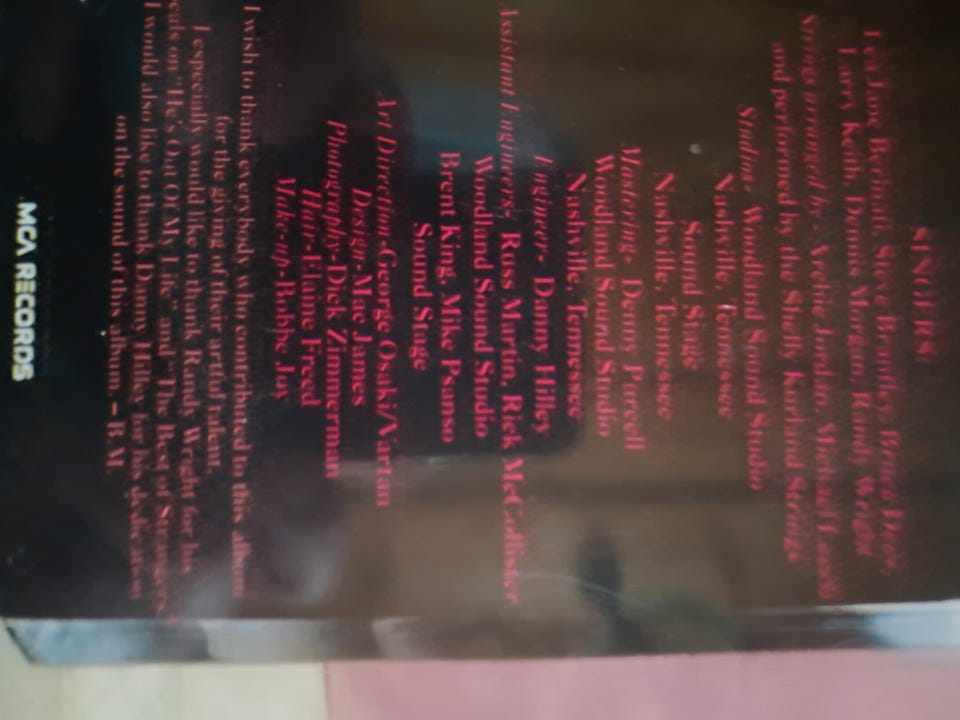 SINGERS
Lea Jane Berinati, Steve Brantley, Bruce Dees
Larry Keith, Donna Morgan, Randy Wright
Strings arranged by - Archie Jordan, Michael
and performed by the Shelly Kurland Strings
Studios - Woodland Sound Studio
Nashville, Tennessee
Sound Stage
Nashville, Tennessee
Mastering - Denny Purcell
Woodland Sound Studio
Nashville, Tennessee
Engineer - Danny Hilley
Assistant Engineers - Russ Martin, Rick McCollister
Woodland Sound Studio
Brent King, Mike Psanso
Sound Stage
Art Direction - George Osaki/Vartan
Design - Mae James
Photography - Dick Zimmerman
Hair - Elaine Freed
Make-up - Bobbe Joy
I wish to thank everybody who contributed to this album
for the giving of their artful talent.
I especially would like to thank Randy Wright for his
on "He's Out Of My Life" and "The Best of Strangers"
I would also like to thank Danny Hilley for his dedication
on the sound of this album. – B.M.
MCA RECORDS